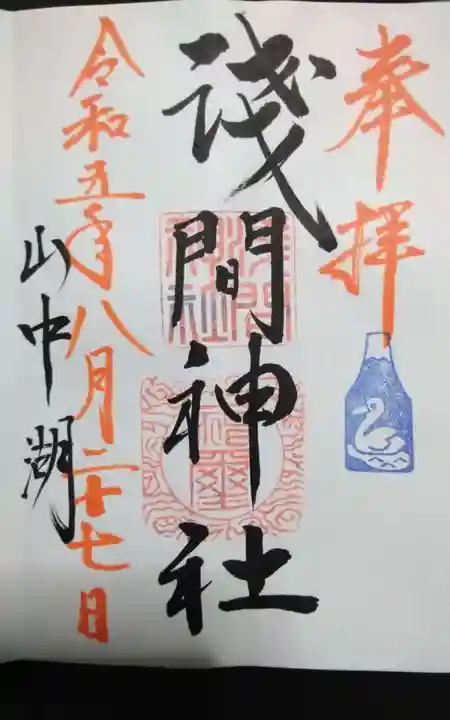 奉拝
淺間神社
令和五年八月二十七日
山中湖
淺間
神社